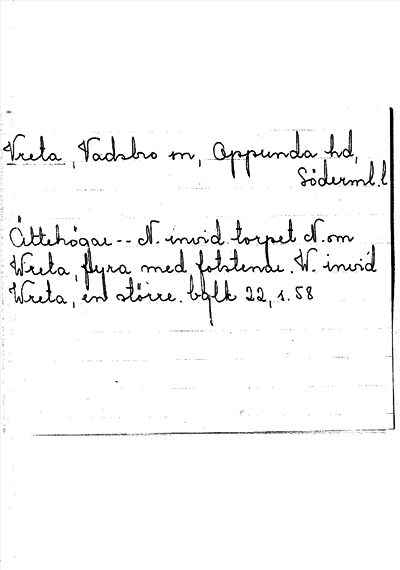 Vreta, Vadsbro sn, Oppunda hd,
Söderml.l
Ättehögar -- N. invid torpet N. om
Wreta, fyra med fotstenar. W. invid
Wreta, en större. bglk 22, s. 58